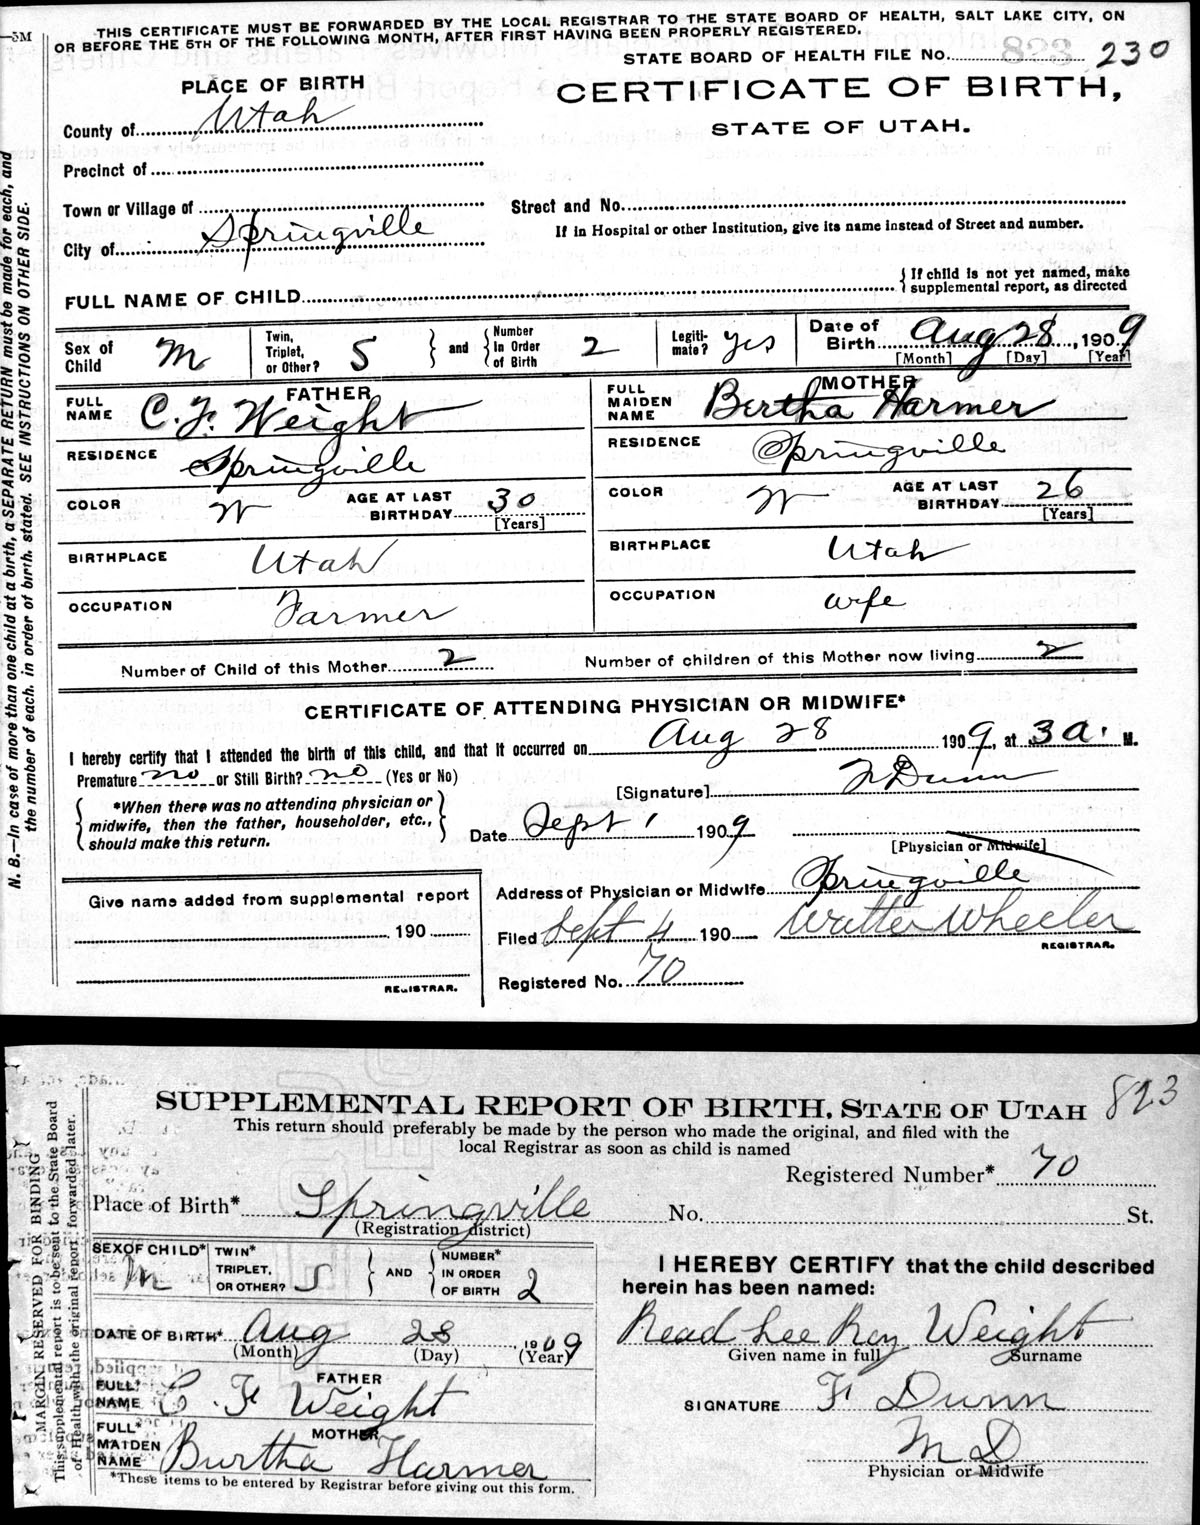 THIS CERTIFICATE MUST BE FORWARDED BY THE LOCAL REGISTRAR TO THE STATE BOARD OF HEALTH, SALT LAKE CITY, ON
OR BEFORE THE 5TH OF THE FOLLOWING MONTH, AFTER FIRST HAVING BEEN PROPERLY REGISTERED.
—5M
STATE BOARD OF HEALTH FILE No. 823 230
PLACE OF BIRTH
CERTIFICATE OF BIRTH,
STATE OF UTAH.
County of Utah
Precinct of
Town or Village of
Street and No.
City of Springville
If in Hospital or other Institution, give its name instead of Street and number.
FULL NAME OF CHILD
If child is not yet named, make
supplemental report, as directed
Sex of Child M
Twin, Triplet, or Other? S
and
Number in Order of Birth 2
Legiti-mate? yes
Date of Birth Aug 28, 1909
[Month] [Day] [Year]
FATHER
FULL NAME C. F. Weight
RESIDENCE Springville
COLOR W
AGE AT LAST BIRTHDAY 30
[Years]
BIRTHPLACE Utah
OCCUPATION Farmer
MOTHER
FULL MAIDEN NAME Bertha Harmer
RESIDENCE Springville
COLOR W
AGE AT LAST BIRTHDAY 26
[Years]
BIRTHPLACE Utah
OCCUPATION wife
Number of Child of this Mother 2 Number of children of this Mother now living 2
CERTIFICATE OF ATTENDING PHYSICIAN OR MIDWIFE*
I hereby certify that I attended the birth of this child, and that it occurred on Aug 28 1909, at 3 a. M.
Premature no or Still Birth? no (Yes or No)
[Signature] F Dunn
*When there was no attending physician or
midwife, then the father, householder, etc.,
should make this return.
Date Sept 1 1909
[Physician or Midwife]
Address of Physician or Midwife Springville
Give name added from supplemental report
190
REGISTRAR.
Filed Sept 4 190 Walter Wheeler
REGISTRAR.
Registered No. 70
N. B.—In case of more than one child at a birth, a SEPARATE RETURN must be made for each, and
the number of each, in order of birth, stated. SEE INSTRUCTIONS ON OTHER SIDE.
SUPPLEMENTAL REPORT OF BIRTH, STATE OF UTAH 823
This return should preferably be made by the person who made the original, and filed with the
local Registrar as soon as child is named
Registered Number* 70
Place of Birth* Springville No. St.
(Registration district)
SEX OF CHILD* M
TWIN* TRIPLET, OR OTHER? S
AND
NUMBER* IN ORDER OF BIRTH 2
DATE OF BIRTH* Aug 28 1909
(Month) (Day) (Year)
FATHER
FULL* NAME C. F Weight
MOTHER
FULL* MAIDEN NAME Burtha Harmer
*These items to be entered by Registrar before giving out this form.
I HEREBY CERTIFY that the child described
herein has been named:
Read Lee Roy Weight
Given name in full Surname
SIGNATURE F Dunn
M D
Physician or Midwife
MARGIN RESERVED FOR BINDING
This supplemental report is to be sent to the State Board
of Health with the original report, forwarded later.